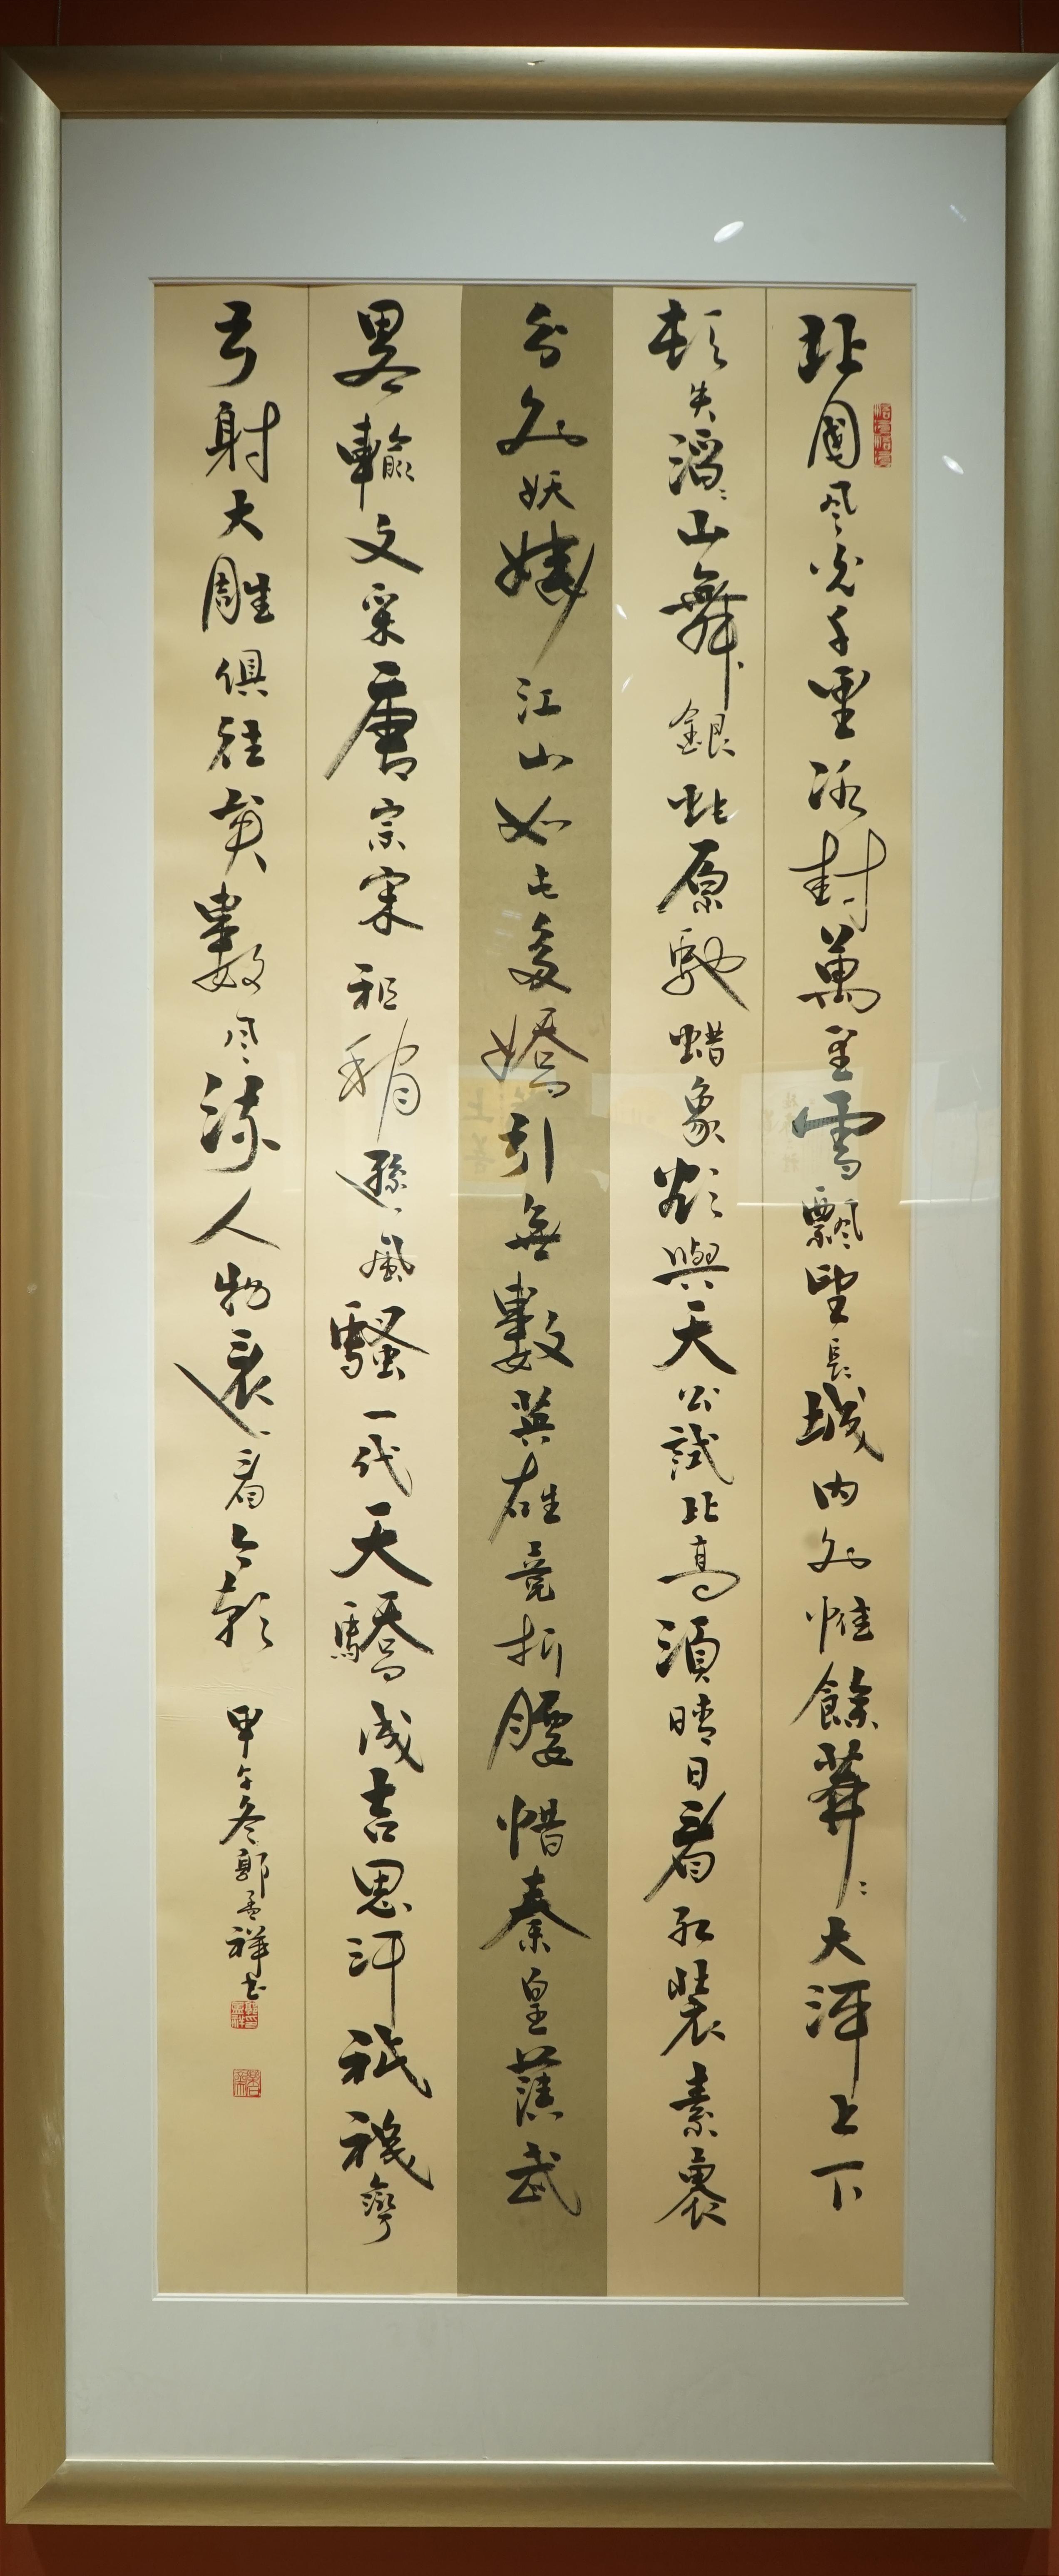 北國风光千里冰封萬里雪飄望長城内外惟餘莽〻大河上下
頓失滔〻山舞銀蛇原馳蜡象欲與天公試比高須晴日看紅裝素裹
分外妖嬈江山如此多嬌引無數英雄竞折腰惜秦皇漢武
畧輸文采唐宗宋祖稍遜風騷一代天驕成吉思汗祇識彎
弓射大雕俱往矣數风流人物還看今朝
甲午冬郭孟祥书